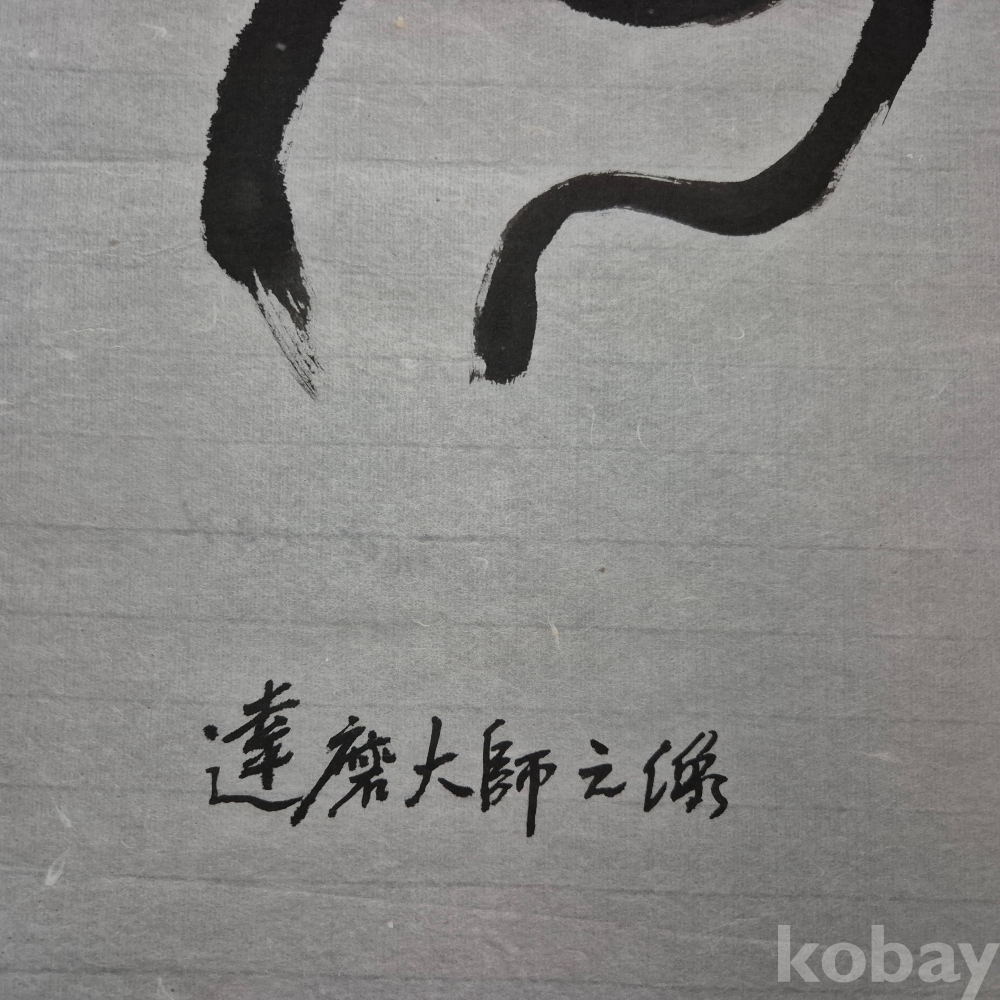 達磨大師之像
kobay